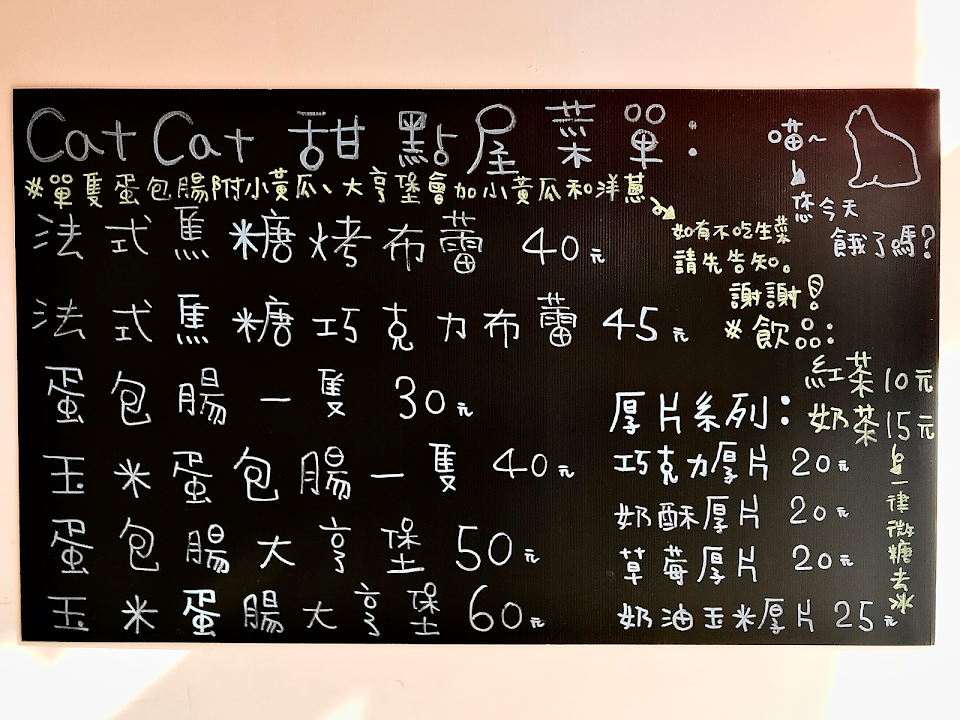 CatCat 甜點屋菜單：
喵~
您今天
餓了嗎？
※單隻蛋包腸附小黃瓜、大亨堡會加小黃瓜和洋蔥
如有不吃生菜
請先告知。
謝謝！
法式焦糖烤布蕾 40元
法式焦糖巧克力布蕾 45元
蛋包腸一隻 30元
玉米蛋包腸一隻 40元
蛋包腸大亨堡 50元
玉米蛋腸大亨堡 60元
※飲品：
紅茶10元
奶茶15元
一律微糖去冰
厚片系列：
巧克力厚片 20元
奶酥厚片 20元
草莓厚片 20元
奶油玉米厚片 25元